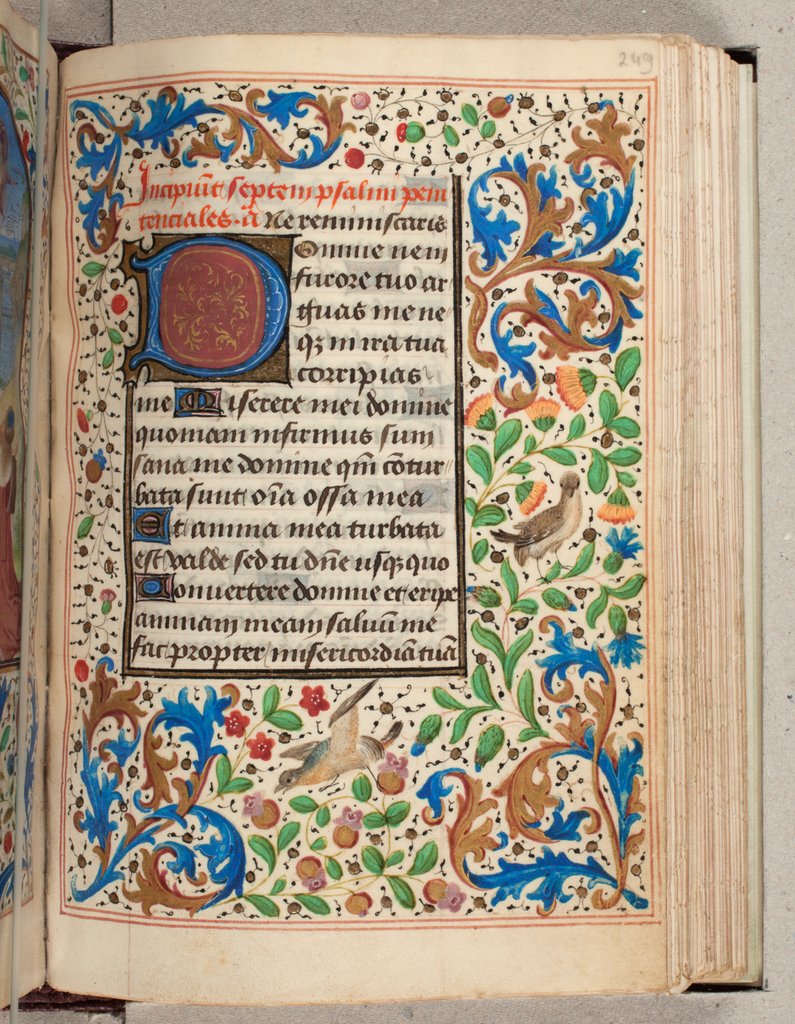 249
Incipiūt septem psalmi peni
tenciales. ā Ne reminiscaris
Domine ne in
furore tuo ar
guas me ne
qȝ in ira tua
corripias
me Miserere mei domine
quoniam infirmus sum
sana me domine qm̄ cōtur
bata sunt oīa ossa mea
Et anima mea turbata
est valde sed tu dn̄e usqȝ quo
Conuertere domine et eripe
animam meam saluū me
fac propter misericordiā tuā